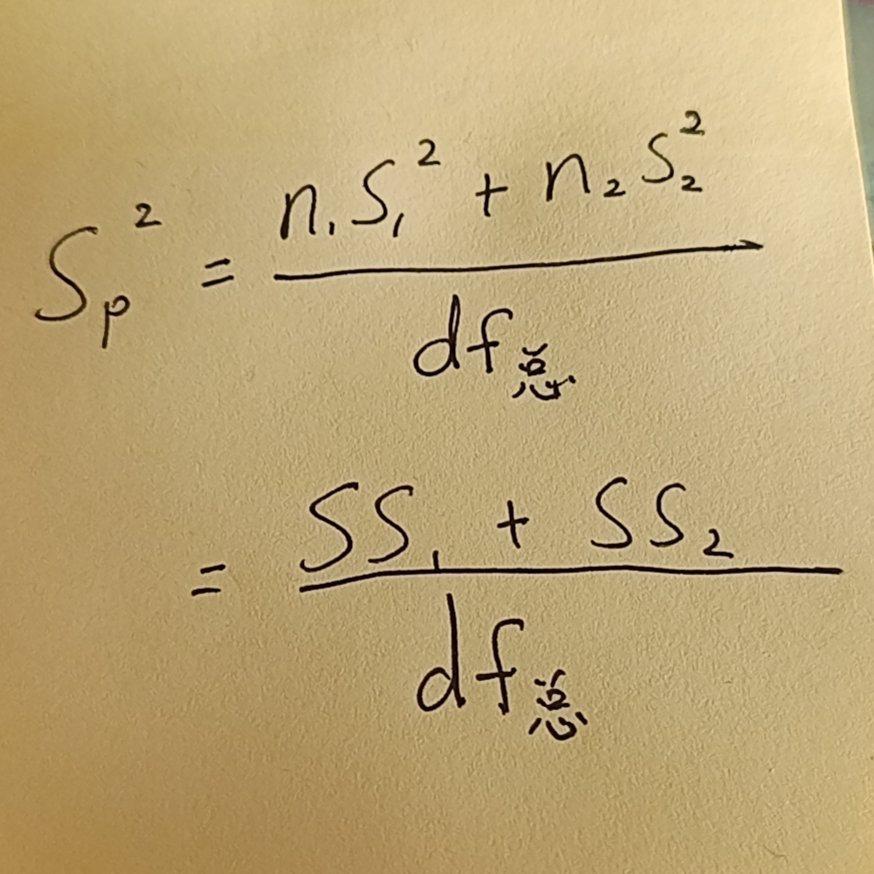 Sₚ² = (n₁S₁² + n₂S₂²) / df总
= (SS₁ + SS₂) / df总